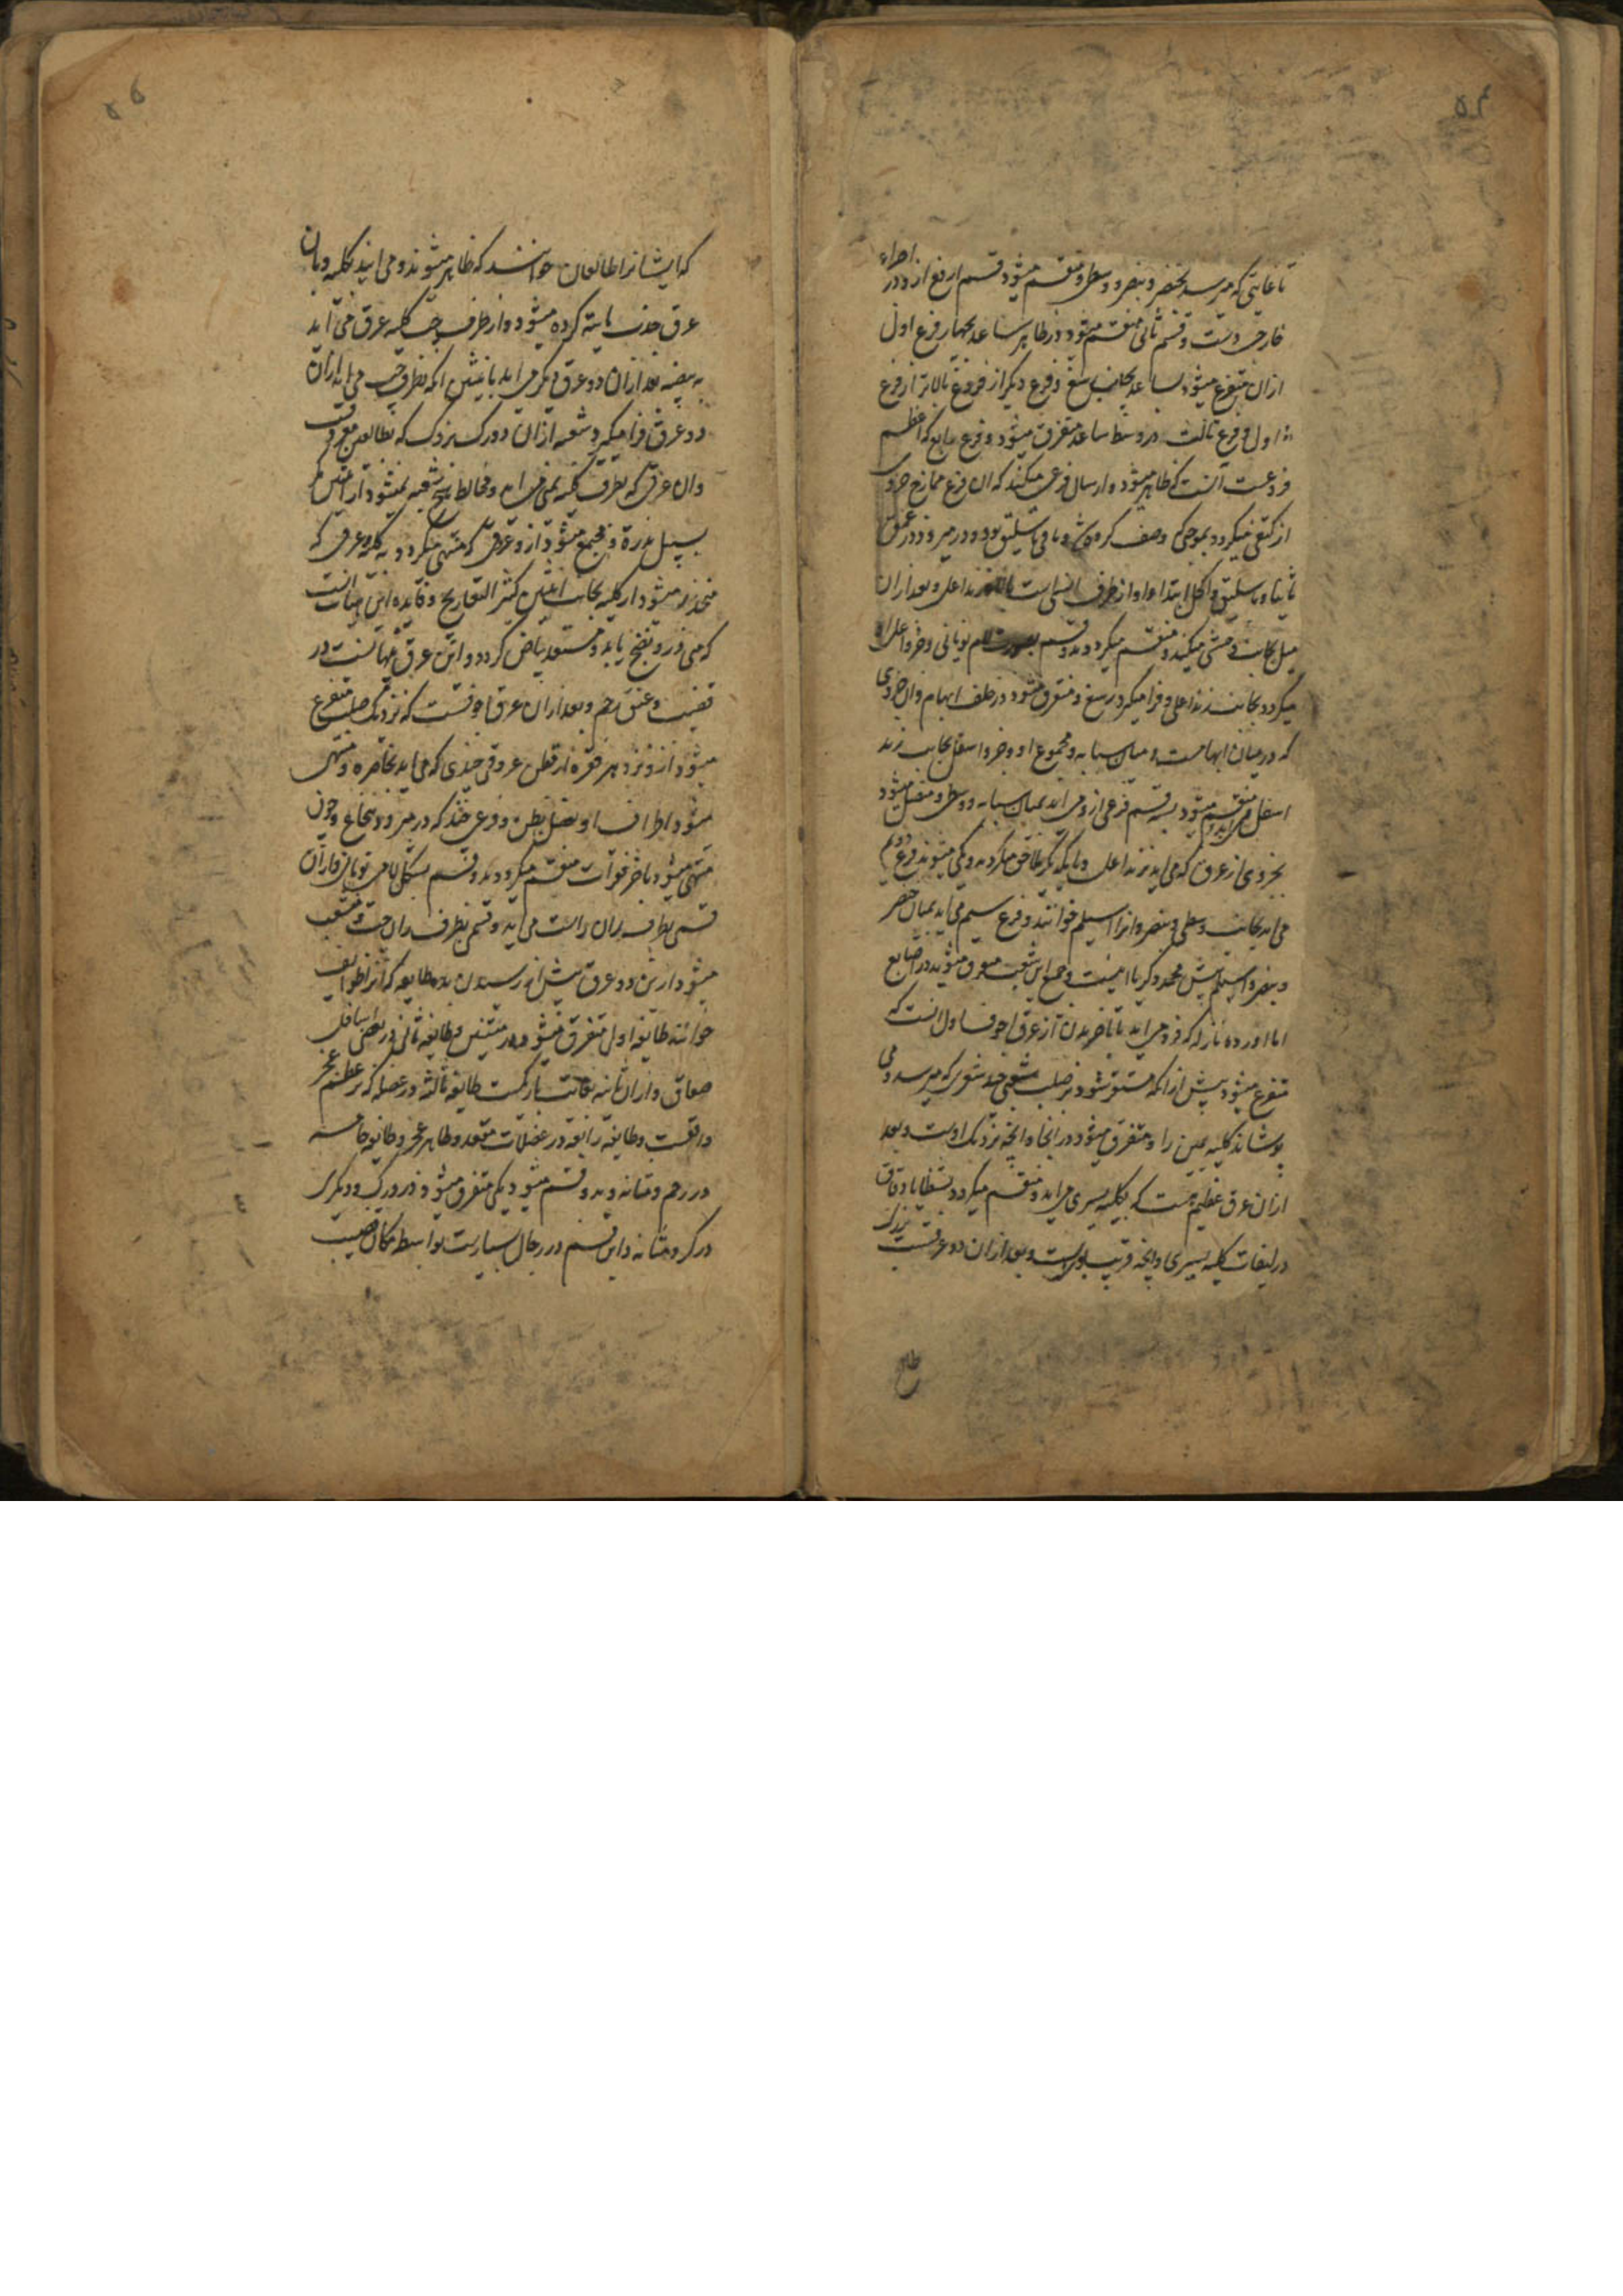 ۵۴
تا غایتی که میرسد بخنصر و بنصر و وسطی و منقسم میشود قسم ارفع ازو در اجراء
خارجی دست و قسم ثانی منقسم میشود در ظاهر ساعد بچهار فرع اول
ازان متفرع میشود بساعد بجانب رسغ و فرع دیگر از فروع بالاتر از فرع
اول و فرع ثالث در وسط ساعد متفرق میشود و فرع رابع که اعظم
فروعست آنست که ظاهر میشود و ارسال فرعی میکند که ان فرع ممازج جزوی
از کتفی میکردد بموجبی که وصف کرده و باقی باسلیق بود و در میرود در عمق
ثانیا و باسلیق و اکحل ابتدا او از طرف انسی است بالای زند اعلی و بعد ازان
میل بجانب وحشی میکند و منقسم میکردد بدو قسم بصورت لام یونانی و جزو اعلی او
میکردد بجانب زند اعلی و فرا میکیرد رسغ و متفرق میشود در خلف ابهام و ان جزوی
که در میان ابهامست و میان سبابه و مجموع او و جزو اسفل بجانب زند
اسفل می اید و منقسم میشود بسه قسم فرعی ازو می اید بمیان سبابه و وسطی و متصل میشود
بجزوی از عرق که می اید بزند اعلی و بایکدیگر ملاحق میکردند و یکی میشوند و فرع دویم
می اید بجانب وسطی و بنصر و انرا اسیلم خوانند و فرع سیم می اید بمیان خنصر
و بنصر و اسیلم پیش محمد زکریا اینست و جمیع این شعب متفرق میشوند در اصابع
اما اورده نازله که فرو می اید تا باخر بدن از عرق اجوف اول انست که
متفرع میشود پیش ازانکه مستقر شود بر صلب شعبی چند شعری که میرسد و می
پوشاند کلیه یمین را و متفرق میشود در انجا و انچه نزدیک اوست و بعد
ازان عرق عظیم هست که بکلیه یسری می اید و منقسم میکردد بشظایا دقاق
در لفایف کلیه یسری و انچه قریب باوست و بعد ازان دو عرقست بزرک
۵۵
که ایشانرا طالعان خوانند که ظاهر میشوند و می ایند بکلیه و بان
عرق جذب مائیه کرده میشود و از طرف چپ کلیه عرق می آید
به بیضه بعد ازان دو عرق دیکر می اید بانثیین انکه بطرف چپ می اید ازان
دو عرق فرا میکیرد شعبه ازان دو رک بزرک که بطالعین معروفست
وان عرقی که بطرف کلیه یمنی می اید و مخالط هیچ شعبه نمیشود از انثیین مکر
بسبیل ندرة و مجتمع میشود ازو عرقی که منتهی میکردد به کلیه و عرقی که
منحدر میشود از کلیه بجانب انثیین کثیر التعاریج و فایده این حیات انست
که منی درو نضج یابد و مستعد بیاض کردد و این عرق منتهاست در
قضیب و عنق رحم و بعد ازان عرق اجوفست که نزدیک صلب متفرع
میشود ازو نزد هر فقره از قطن عروقی چندی که می اید بخاصره و منتهی
میشود اطراف او بعضل بطن و فرعی چند که در میرود بنخاع و چون
منتهی میشود باخر فقرات منقسم میکردد بدو قسم بشکل لام یونانی و ازان
قسمی بطرف ران راست می اید و قسمی بطرف ران چپ و متشعب
میشود ازین دو عرق پیش از رسیدن بده طایفه که انرا طوایف
خوانند طایفه اول متفرق میشود در متنین و طایفه ثانی در بعضی اسافل
صفاق و ازان ثانیه بغایت باریکست طایفه ثالثه در عضله که بر عظم عجز
واقعست و طایفه رابعه در عضلات مقعد و ظاهر عجز و طایفه خامسه
در رحم و مثانه و بدو قسم میشود یکی متفرق میشود درو و دیگری
در کردن مثانه و این قسم در رجال بسیارست بواسطه مکان قضیب